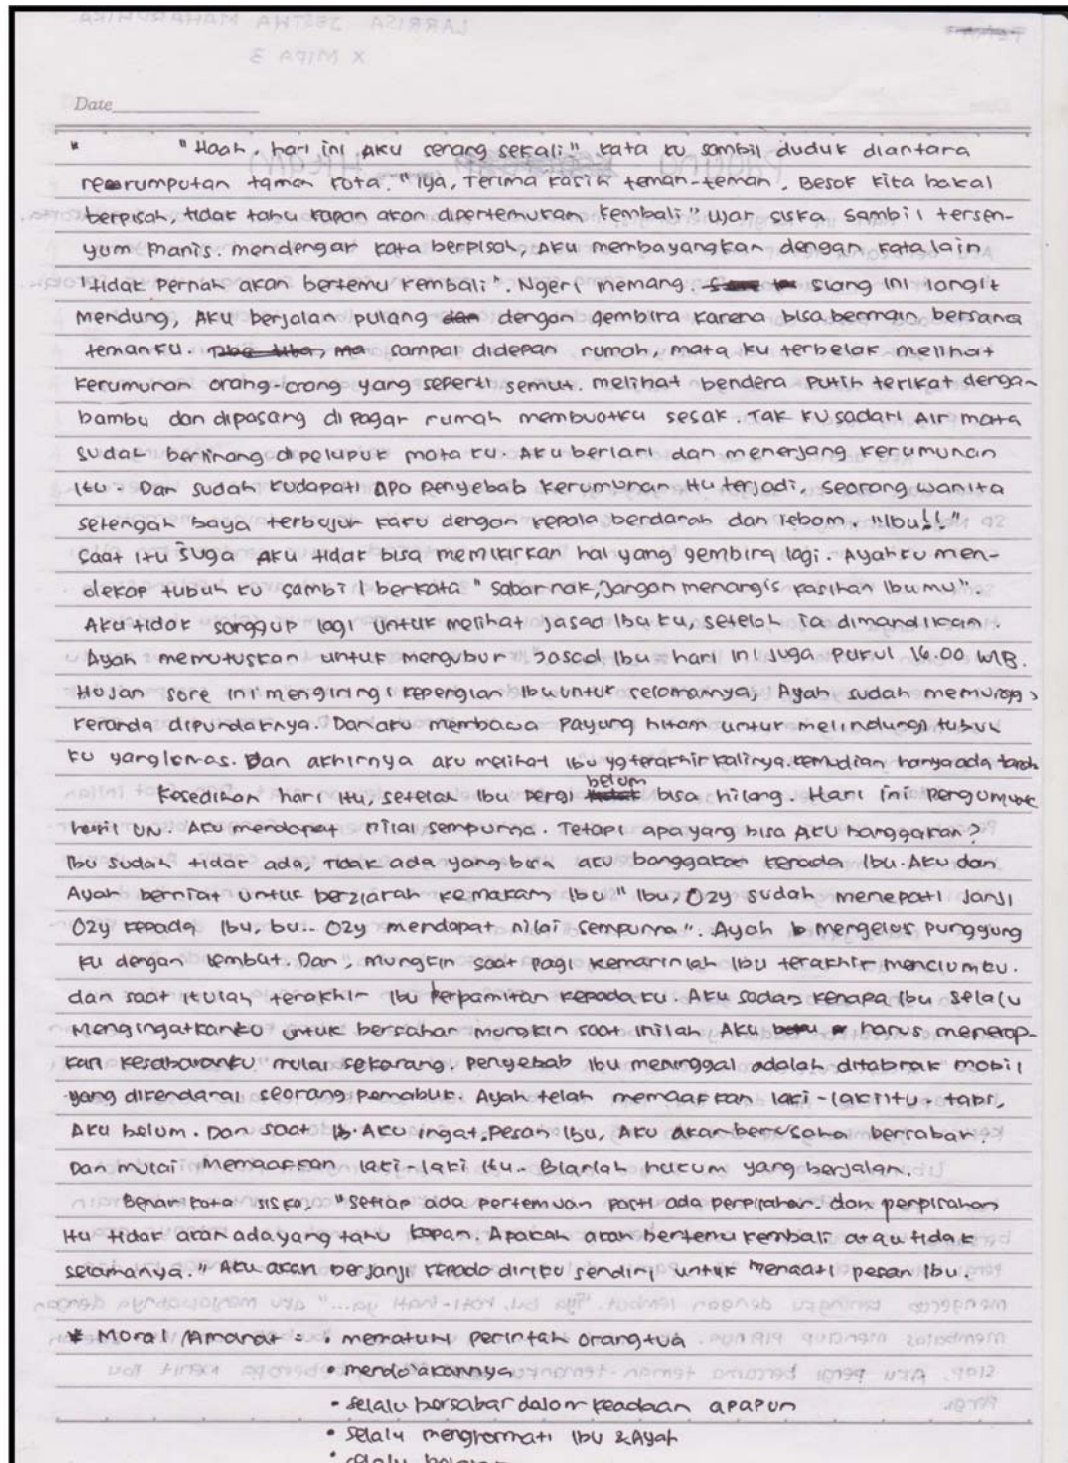 Date
" "Haah, hari ini aku senang sekali" kata ku sambil duduk diantara
rerumputan taman kota. "Iya, Terima kasih teman-teman. Besok kita bakal
berpisah, tidak tahu kapan akan dipertemukan kembali" ujar siska sambil tersen-
yum manis. mendengar kata berpisah, aku membayangkan dengan kata lain
"tidak pernah akan bertemu kembali". Ngeri memang. siang ini langit
mendung, aku berjalan pulang dengan gembira karena bisa bermain bersama
temanku. sampai didepan rumah, mata ku terbelak melihat
kerumunan orang-orang yang seperti semut. melihat bendera putih terikat dengan
bambu dan dipasang di pagar rumah membuatku sesak. Tak ku sadari air mata
sudah berlinang dipelupuk mata ku. Aku berlari dan menerjang kerumunan
itu. Dan sudah kudapati apa penyebab kerumunan itu terjadi, seorang wanita
setengah baya terbujur kaku dengan kepala berdarah dan lebam. "Ibu!!"
Saat itu juga aku tidak bisa memikirkan hal yang gembira lagi. Ayahku men-
dekap tubuh ku sambil berkata "sabar nak, jangan menangis kasihan Ibumu".
Aku tidak sanggup lagi untuk melihat jasad Ibu ku, setelah ia dimandikan.
Ayah memutuskan untuk mengubur jasad Ibu hari ini juga pukul 16.00 WIB.
Hujan sore ini mengiringi kepergian Ibu untuk selamanya, Ayah sudah
keranda dipundaknya. Dan aku membawa payung hitam untuk melindungi tubuh
ku yang lemas. Dan akhirnya aku melihat Ibu yg terakhir kalinya. kemudian hanya ada tanah
Kesedihan hari itu, setelah Ibu pergi belum bisa hilang. Hari ini
hasil UN. Aku mendapat nilai sempurna. Tetapi apa yang bisa aku banggakan?
Ibu sudah tidak ada, tidak ada yang bisa aku banggakan kepada Ibu. Aku dan
Ayah berniat untuk berziarah kemakam Ibu "Ibu, Ozy sudah menepati janji
Ozy kepada Ibu, bu.. Ozy mendapat nilai sempurna". Ayah mengelus punggung
ku dengan lembut. Dan, mungkin saat pagi kemarinlah Ibu terakhir menciumku.
dan saat itulah terakhir Ibu berpamitan kepadaku. Aku sadar kenapa Ibu selalu
mengingatkanku untuk bersabar mungkin saat inilah Aku harus menerap-
kan kesabaranku mulai sekarang. penyebab Ibu meninggal adalah ditabrak mobil
yang dikendarai seorang pemabuk. Ayah telah memaafkan laki-laki itu. tapi,
Aku belum. Dan saat Aku ingat pesan Ibu, Aku akan berusaha bersabar.
Dan mulai memaafkan laki-laki itu.. Biarlah hukum yang berjalan.
Benar kata siska, "setiap ada pertemuan pasti ada perpisahan. dan perpisahan
itu tidak akan ada yang tahu kapan. Apakah akan bertemu kembali atau tidak
selamanya." Aku akan berjanji kepada diriku sendiri untuk menaati pesan Ibu.
* Moral /Amanat = • mematuhi perintah orangtua
• mendo'akannya
• selalu bersabar dalam keadaan apapun
• selalu menghormati Ibu & Ayah